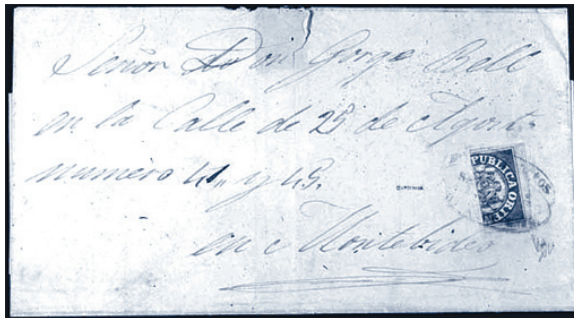 Señor Don Gorge Bell
en la Calle de 25 de Agost.
numero 41, y 43.
en Montebideo
REPUBLICA ORIE